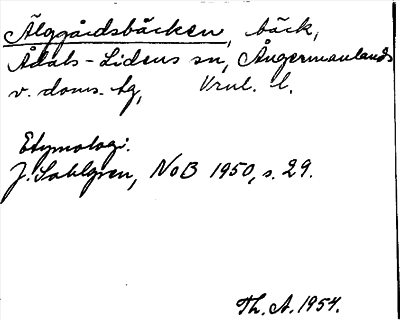 Älggårdsbäcken, bäck,
Ådals-Lidens sn, Ångermanlands
v. doms. tg, Vnl. l.
Etymologi.
J. Sahlgren, NoB 1950, s. 29.
Th. A. 1954.